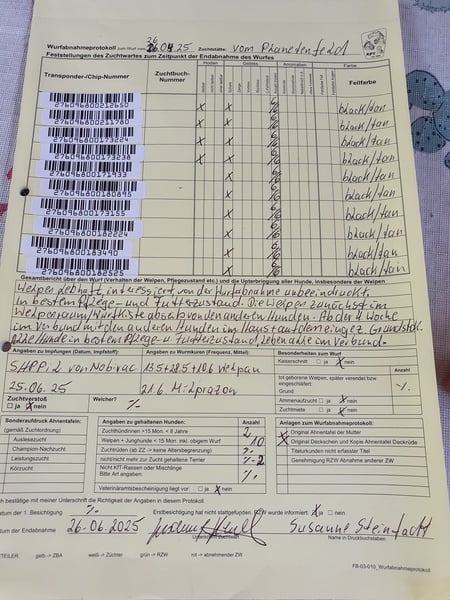 Wurfabnahmeprotokoll zum Wurf vom 26.04.25 Zuchtstätte: vom Planetenfeld
KFT
Feststellungen des Zuchtwartes zum Zeitpunkt der Endabnahme des Wurfes
Hoden Gebiss Anomalien Farbe
Transponder/Chip-Nummer Zuchtbuch-Nummer Fellfarbe
276096800212650 x x 6/6 black/tan
276096800211780 x x 6/6 black/tan
276096800173224 x x 6/6 black/tan
276096800173238 x x 6/6 black/tan
276096800171933 x 6/6 black/tan
276096800180895 x 6/6 black/tan
276096800173155 x 6/6 black/tan
276096800182224 x 6/6 black/tan
276096800183490 x 6/6 black/tan
276096800182525 x 6/6 black/tan
Gesamtbericht über den Wurf (Verhalten der Welpen, Pflegezustand etc.) und die Unterbringung aller Hunde, insbesondere der Welpen
Welpen lebhaft, interessiert von der Wurfabnahme unbeeindruckt.
In bestem Pflege- und Futterzustand. Die Welpen zunächst im
Welpenraum/Wurfkiste abseits von anderen Hunden. Ab der 4 Woche
im Verbund mit den anderen Hunden im Haus + auf dem eingez. Grundstck.
Alle Hunde in bestem Pflege- u. Futterzustand, leben alle im Verbund.
Angaben zu Impfungen (Datum, Impfstoff): Angaben zu Wurmkuren (Frequenz, Mittel): Besonderheiden zum Wurf
SHPPi2 von Nobivac 13.5+28.5+10.6 Welpan Kaiserschnitt ja x nein
25.06.25 21.6 Milprazon tot geborene Welpen, später verendet bzw. eingeschläfert: -/.
Grund
Zuchtverstoß Welcher? Ammenaufzucht ja x nein
ja x nein -/. Zuchtmiete ja x nein
Sonderaufdruck Ahnentafeln: Angaben zu gehaltenen Hunden: Anzahl Anlagen zum Wurfabnahmeprotokoll:
(gemäß Zuchtordnung) Zuchthündinnen >15 Mon. < 8 Jahre 2 x Original Ahnentafel der Mutter
Auslesezucht Welpen + Junghunde < 15 Mon. inkl. obigem Wurf 10 x Original Deckschein und Kopie Ahnentafel Deckrüde
Champion-Nachzucht Zuchtrüden (ab ZZ -> keine Altersbegrenzung) -/. Titelurkunden nicht erfasster Titel
Leistungszucht nicht/nicht mehr zur Zucht gehaltene Terrier 2 Genehmigung RZW Abnahme anderer ZW
Körzucht Nicht KfT-Rassen oder Mischlinge
Bitte Art angeben: -/.
Veterinäramtsbescheinigung liegt vor: ja x nein
Ich bestätige mit meiner Unterschrift die Richtigkeit der Angaben in diesem Protokoll.
Datum der 1. Besichtigung -/. Erstbesichtigung hat nicht stattgefunden, RZW wurde informiert x ja nein
Datum der Endabnahme 26.06.2025 Susanne Steinfadt
Unterschrift Zuchtwart Name in Druckbuchstaben
VERTEILER: gelb -> ZBA weiß -> Züchter grün -> RZW rot -> abnehmender ZW
FB-03-010_Wurfabnahmeprotokoll